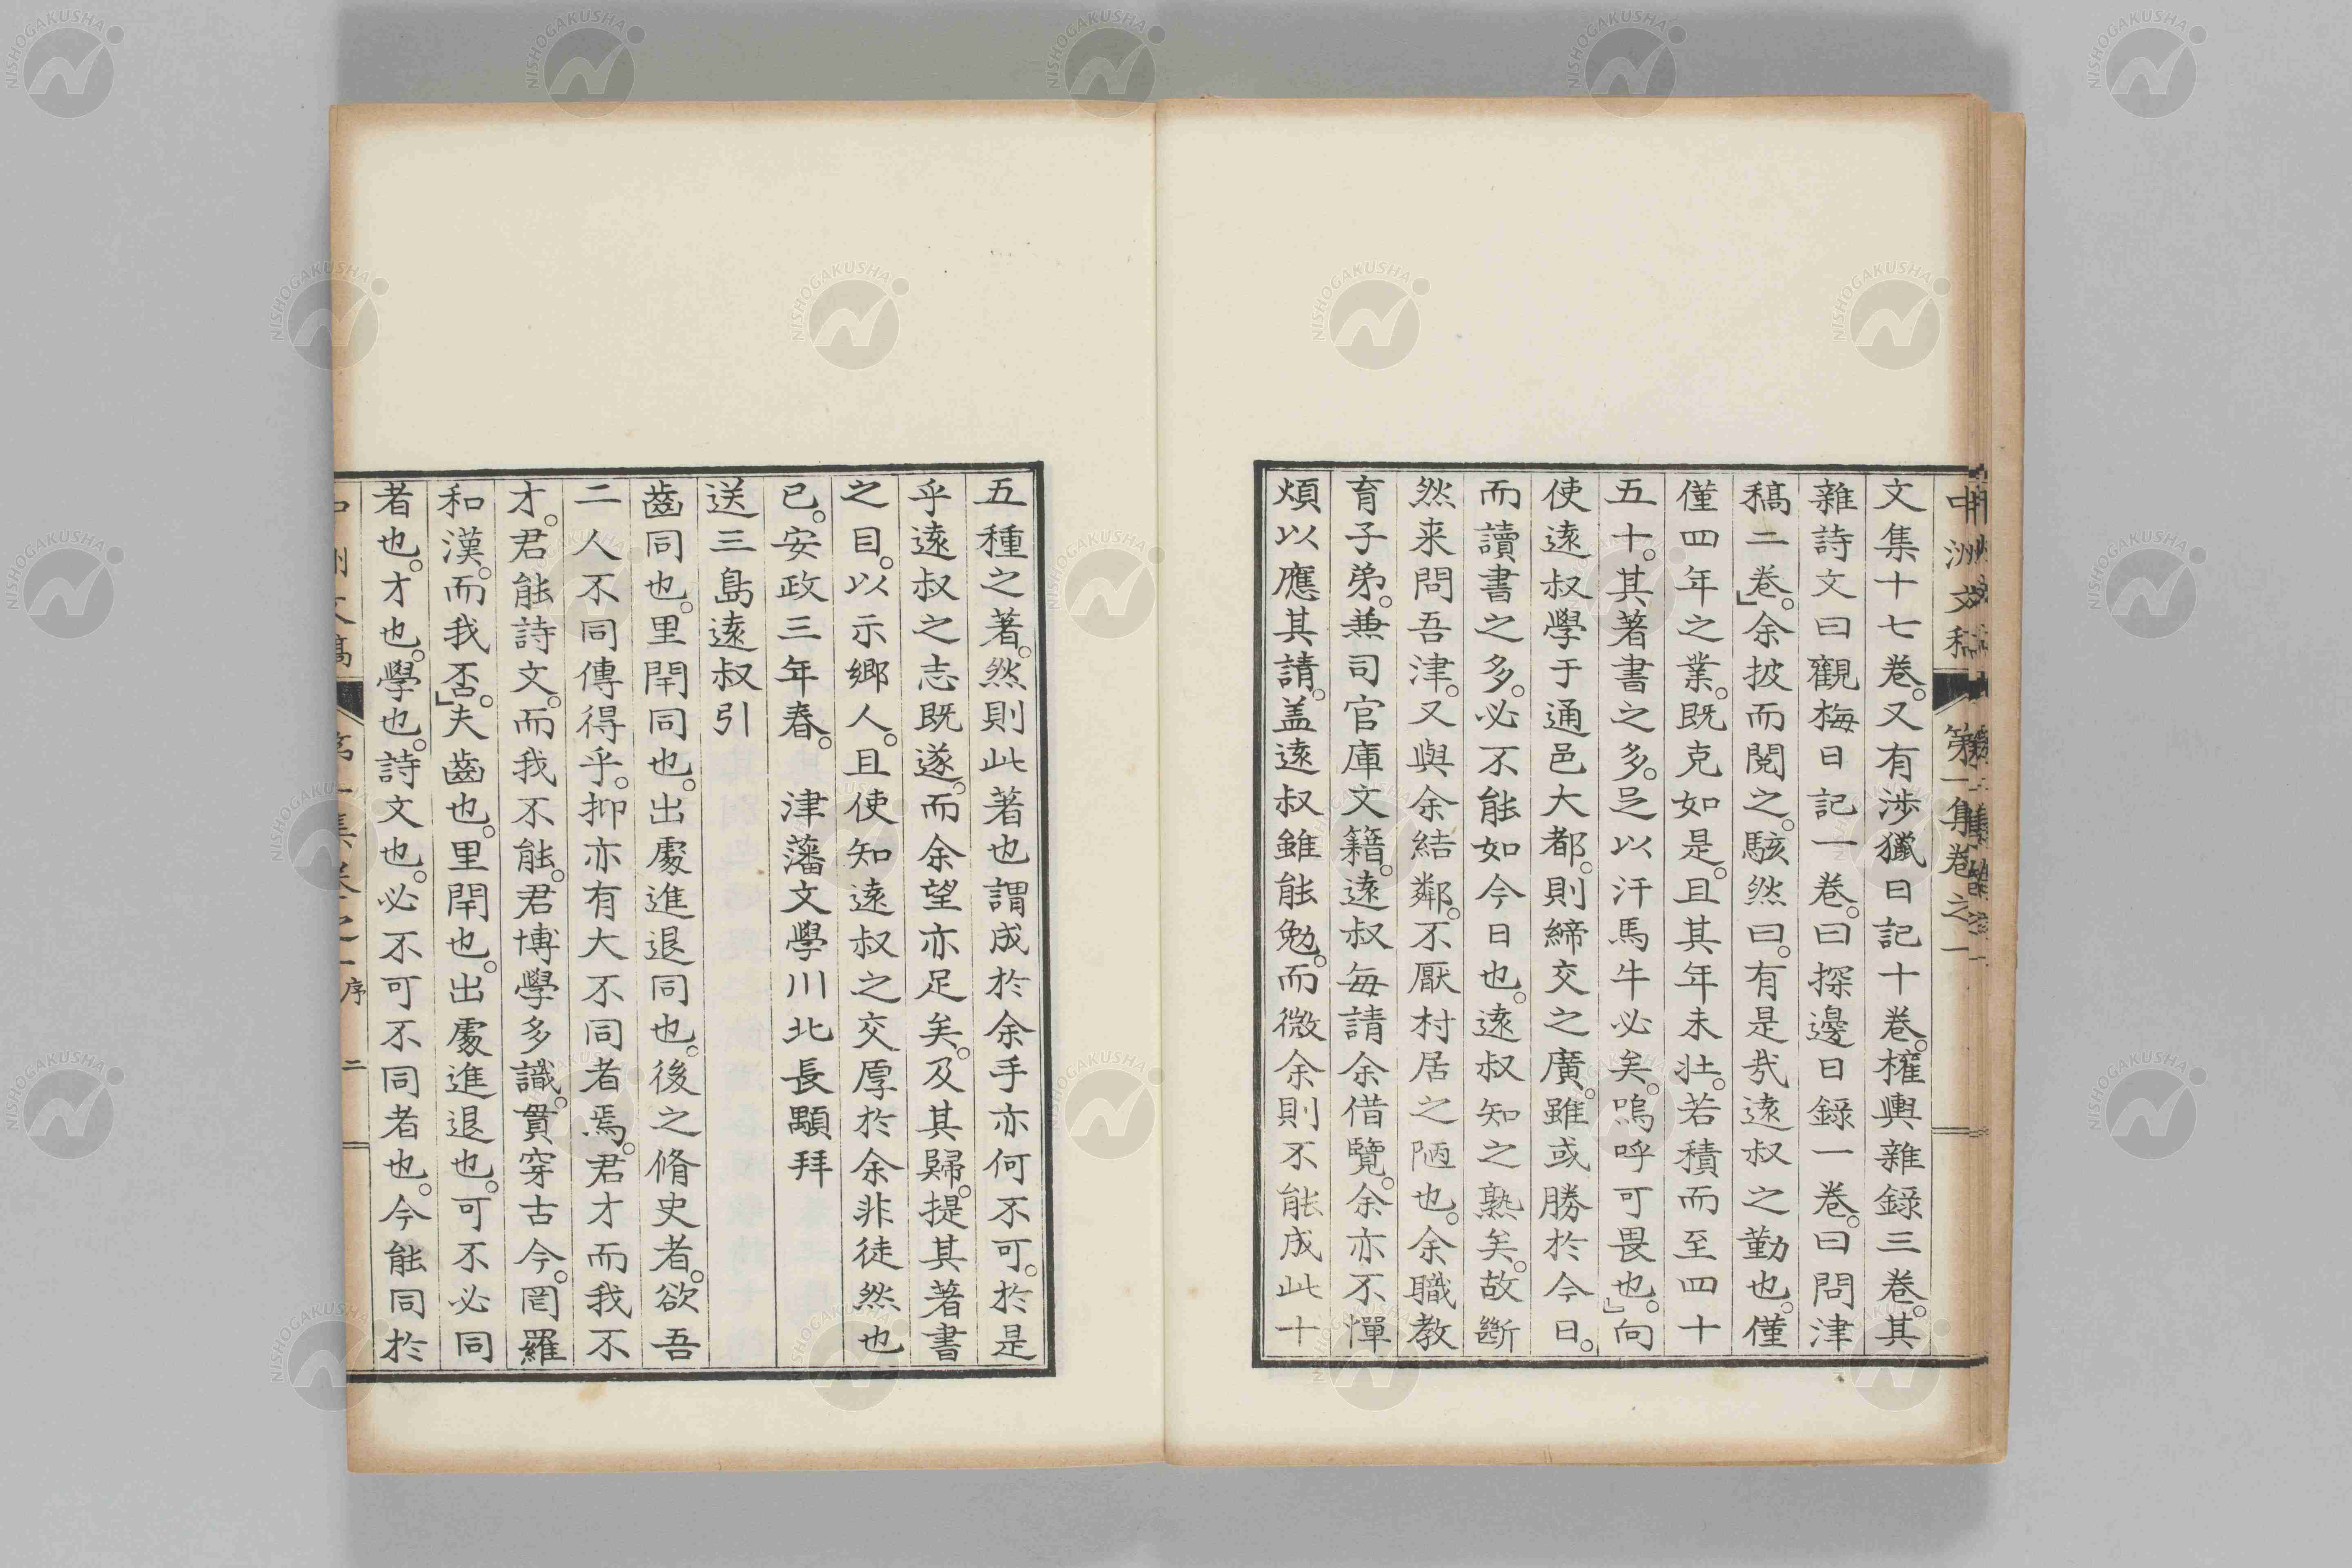 中洲文稿 第一集卷之一
文集十七卷。又有涉獵日記十卷。権輿雜録三卷。其
雜詩文曰觀梅日記一卷。曰探邊日録一卷。曰問津
稿二卷。」余披而閲之。駭然曰。有是㢤遠叔之勤也。僅
僅四年之業。既克如是。且其年未壯。若積而至四十
五十。其著書之多。足以汗馬牛必矣。嗚呼可畏也。」向
使遠叔學于通邑大都。則締交之廣。雖或勝於今日。
而讀書之多。必不能如今日也。遠叔知之熟矣。故斷
然来問吾津。又與余結鄰。不厭村居之陋也。余職教
育子弟。兼司官庫文籍。遠叔毎請余借覽。余亦不憚
煩以應其請。盖遠叔雖能勉。而微余則不能成此十
五種之著。然則此著也謂成於余手亦何不可。於是
乎遠叔之志既遂。而余望亦足矣。及其歸。提其著書
之目。以示郷人。且使知遠叔之交厚於余非徒然也
已。安政三年春。 津藩文學川北長顒拜
送三島遠叔引
齒同也。里閈同也。出處進退同也。後之脩史者。欲吾
二人不同傳得乎。抑亦有大不同者焉。君才而我不
才。君能詩文。而我不能。君博學多識。貫穿古今。罔羅
和漢。而我否。」夫齒也。里閈也。出處進退也。可不必同
者也。才也。學也。詩文也。必不可不同者也。今能同於
序 二